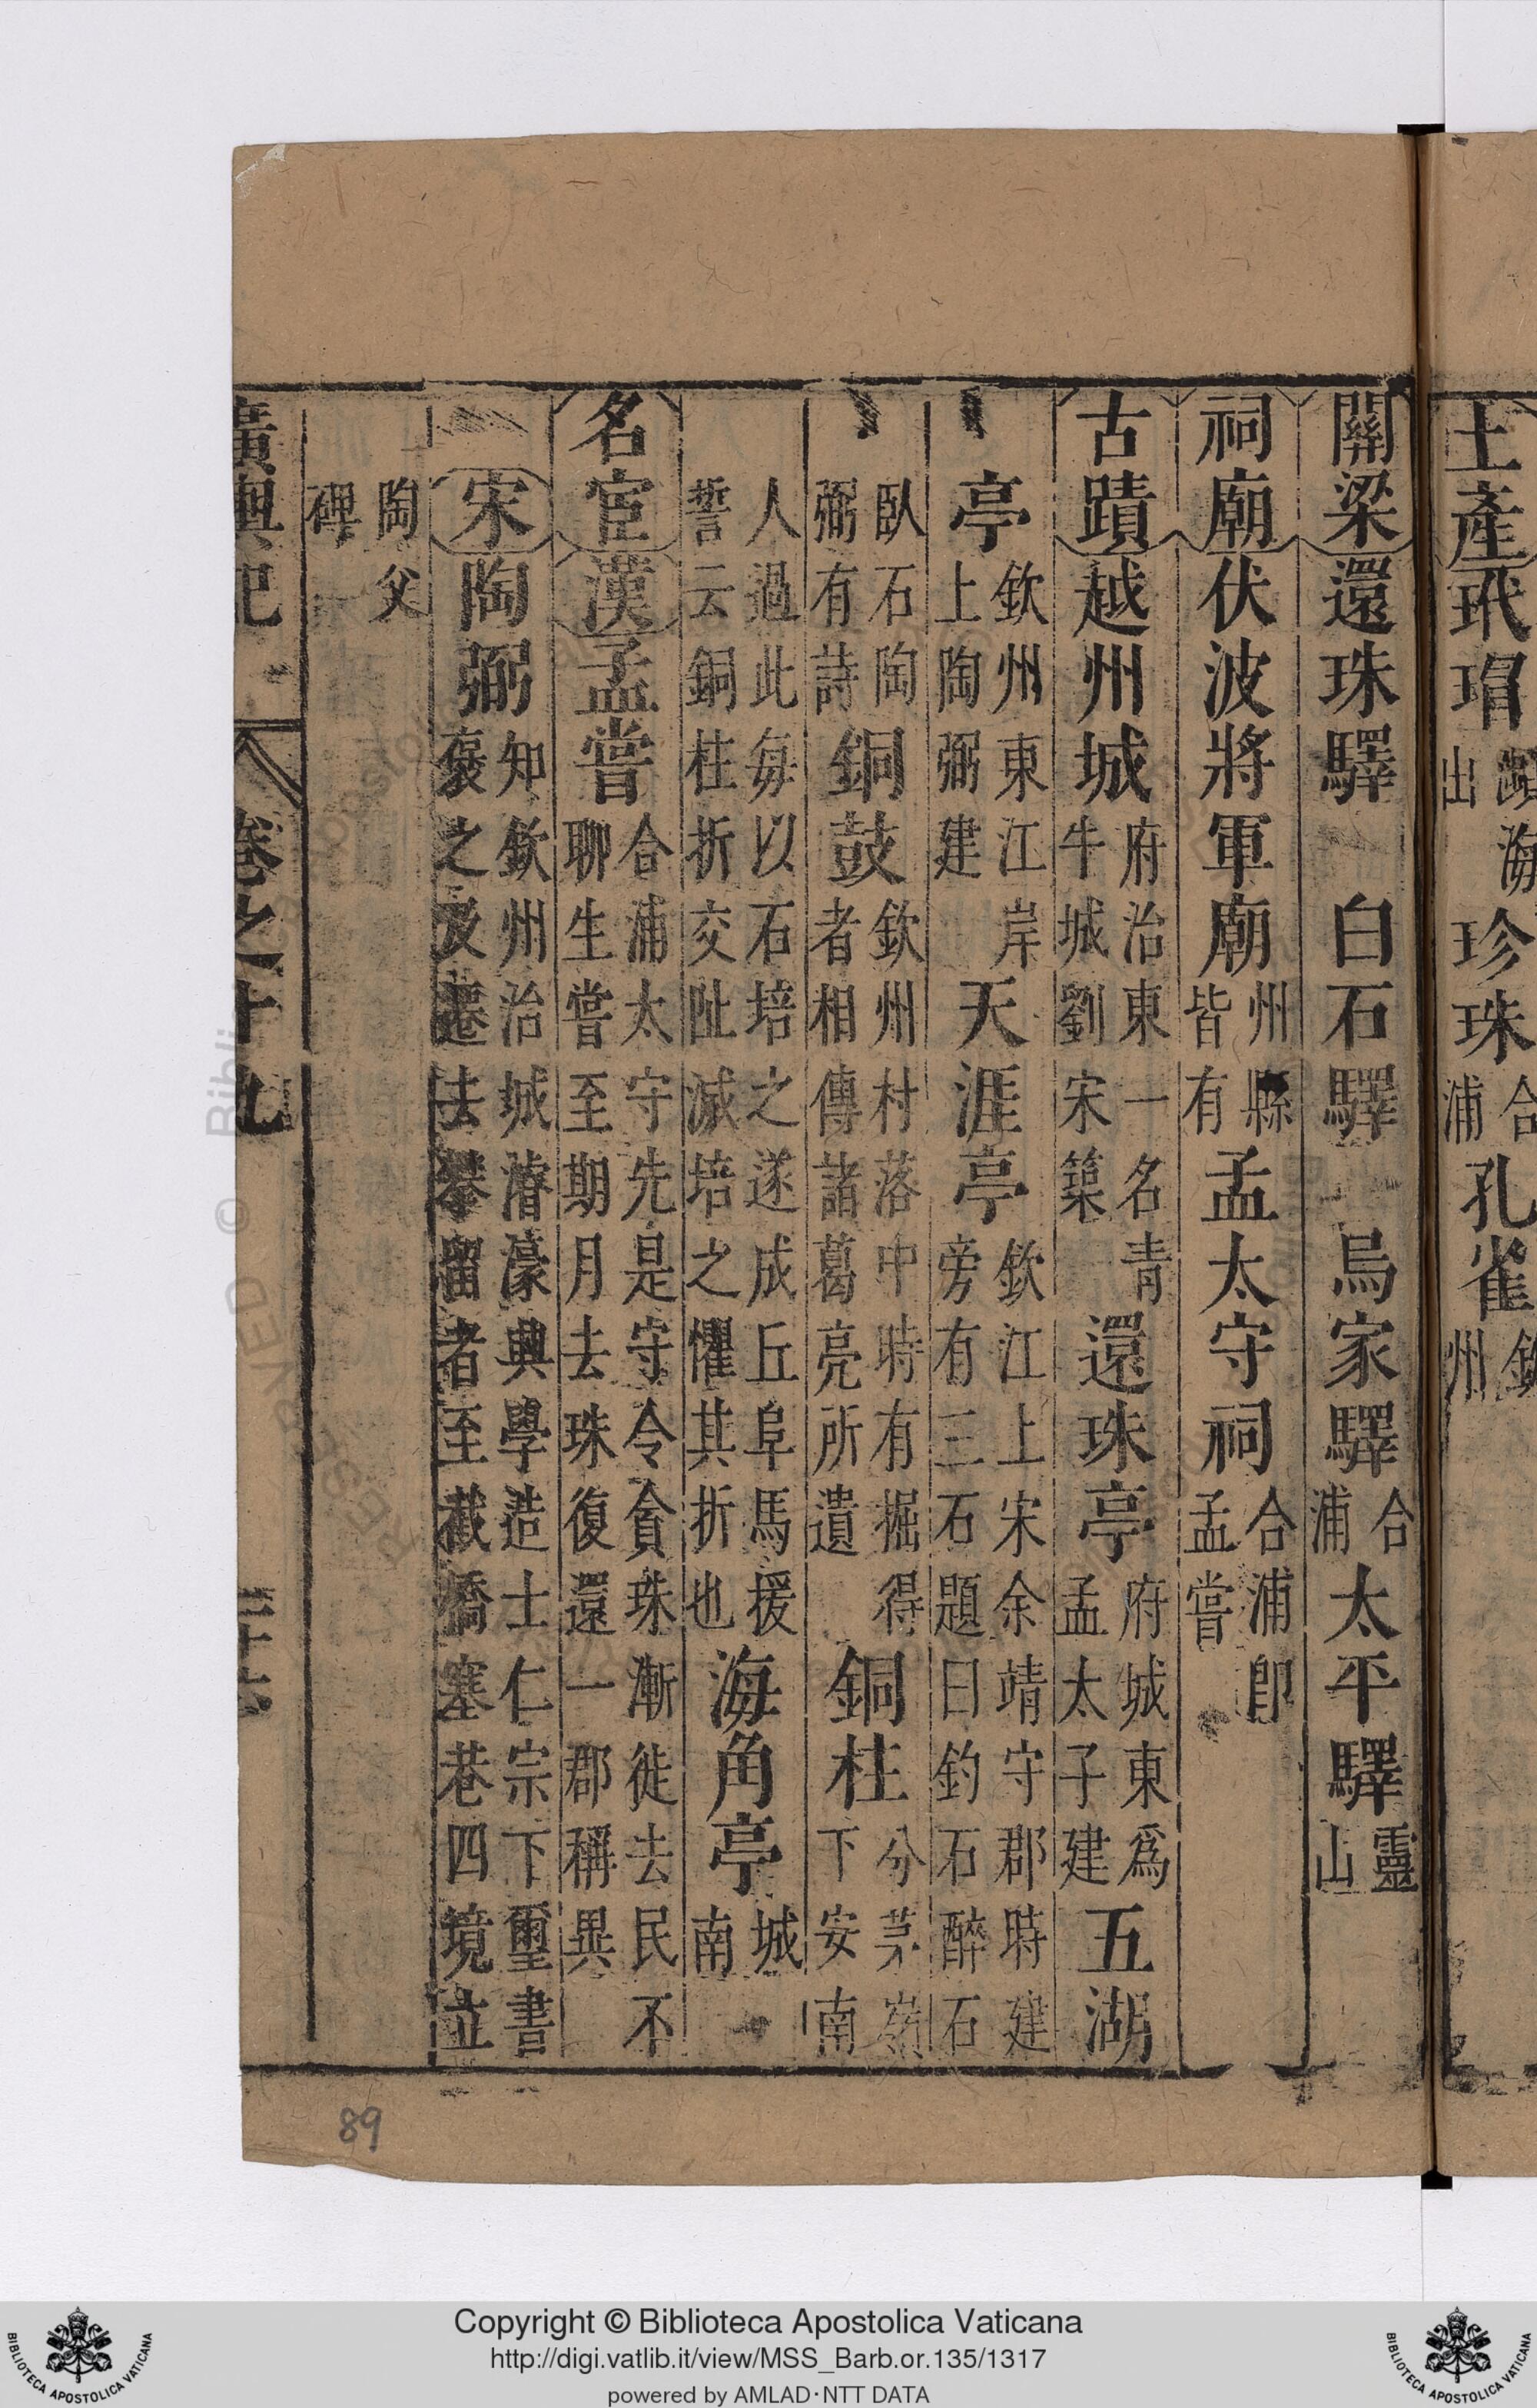 土產玳瑁出海珍珠合浦孔雀州
關梁還珠驛 白石驛 烏家驛合浦太平驛靈山
祠廟伏波將軍廟州縣皆有孟太守祠合浦卽孟嘗
古蹟越州城府治東一名青牛城劉宋築還珠亭府城東爲孟太子建五湖
亭欽州東江岸上陶弼建天涯亭欽江上宋余靖守郡時建旁有三石題曰釣石醉石
臥石陶弼有詩銅鼓欽州村落中時有掘得者相傳諸葛亮所遺銅柱分茅嶺下安南
人過此每以石培之遂成丘阜馬援誓云銅柱折交阯滅培之懼其折也海角亭城南
名宦漢孟嘗合浦太守先是守令貪珠漸徙去民不聊生嘗至期月去珠復還一郡稱異
宋陶弼知欽州治城濬濠興學造士仁宗下璽書褒之及遷去攀留者至截橋塞巷四境立
陶父碑
廣輿記 卷之十九
Copyright © Biblioteca Apostolica Vaticana
http://digi.vatlib.it/view/MSS_Barb.or.135/1317
powered by AMLAD·NTT DATA
BIBLIOTECA APOSTOLICA VATICANA
BIBLIOTECA APOSTOLICA VATICANA
89